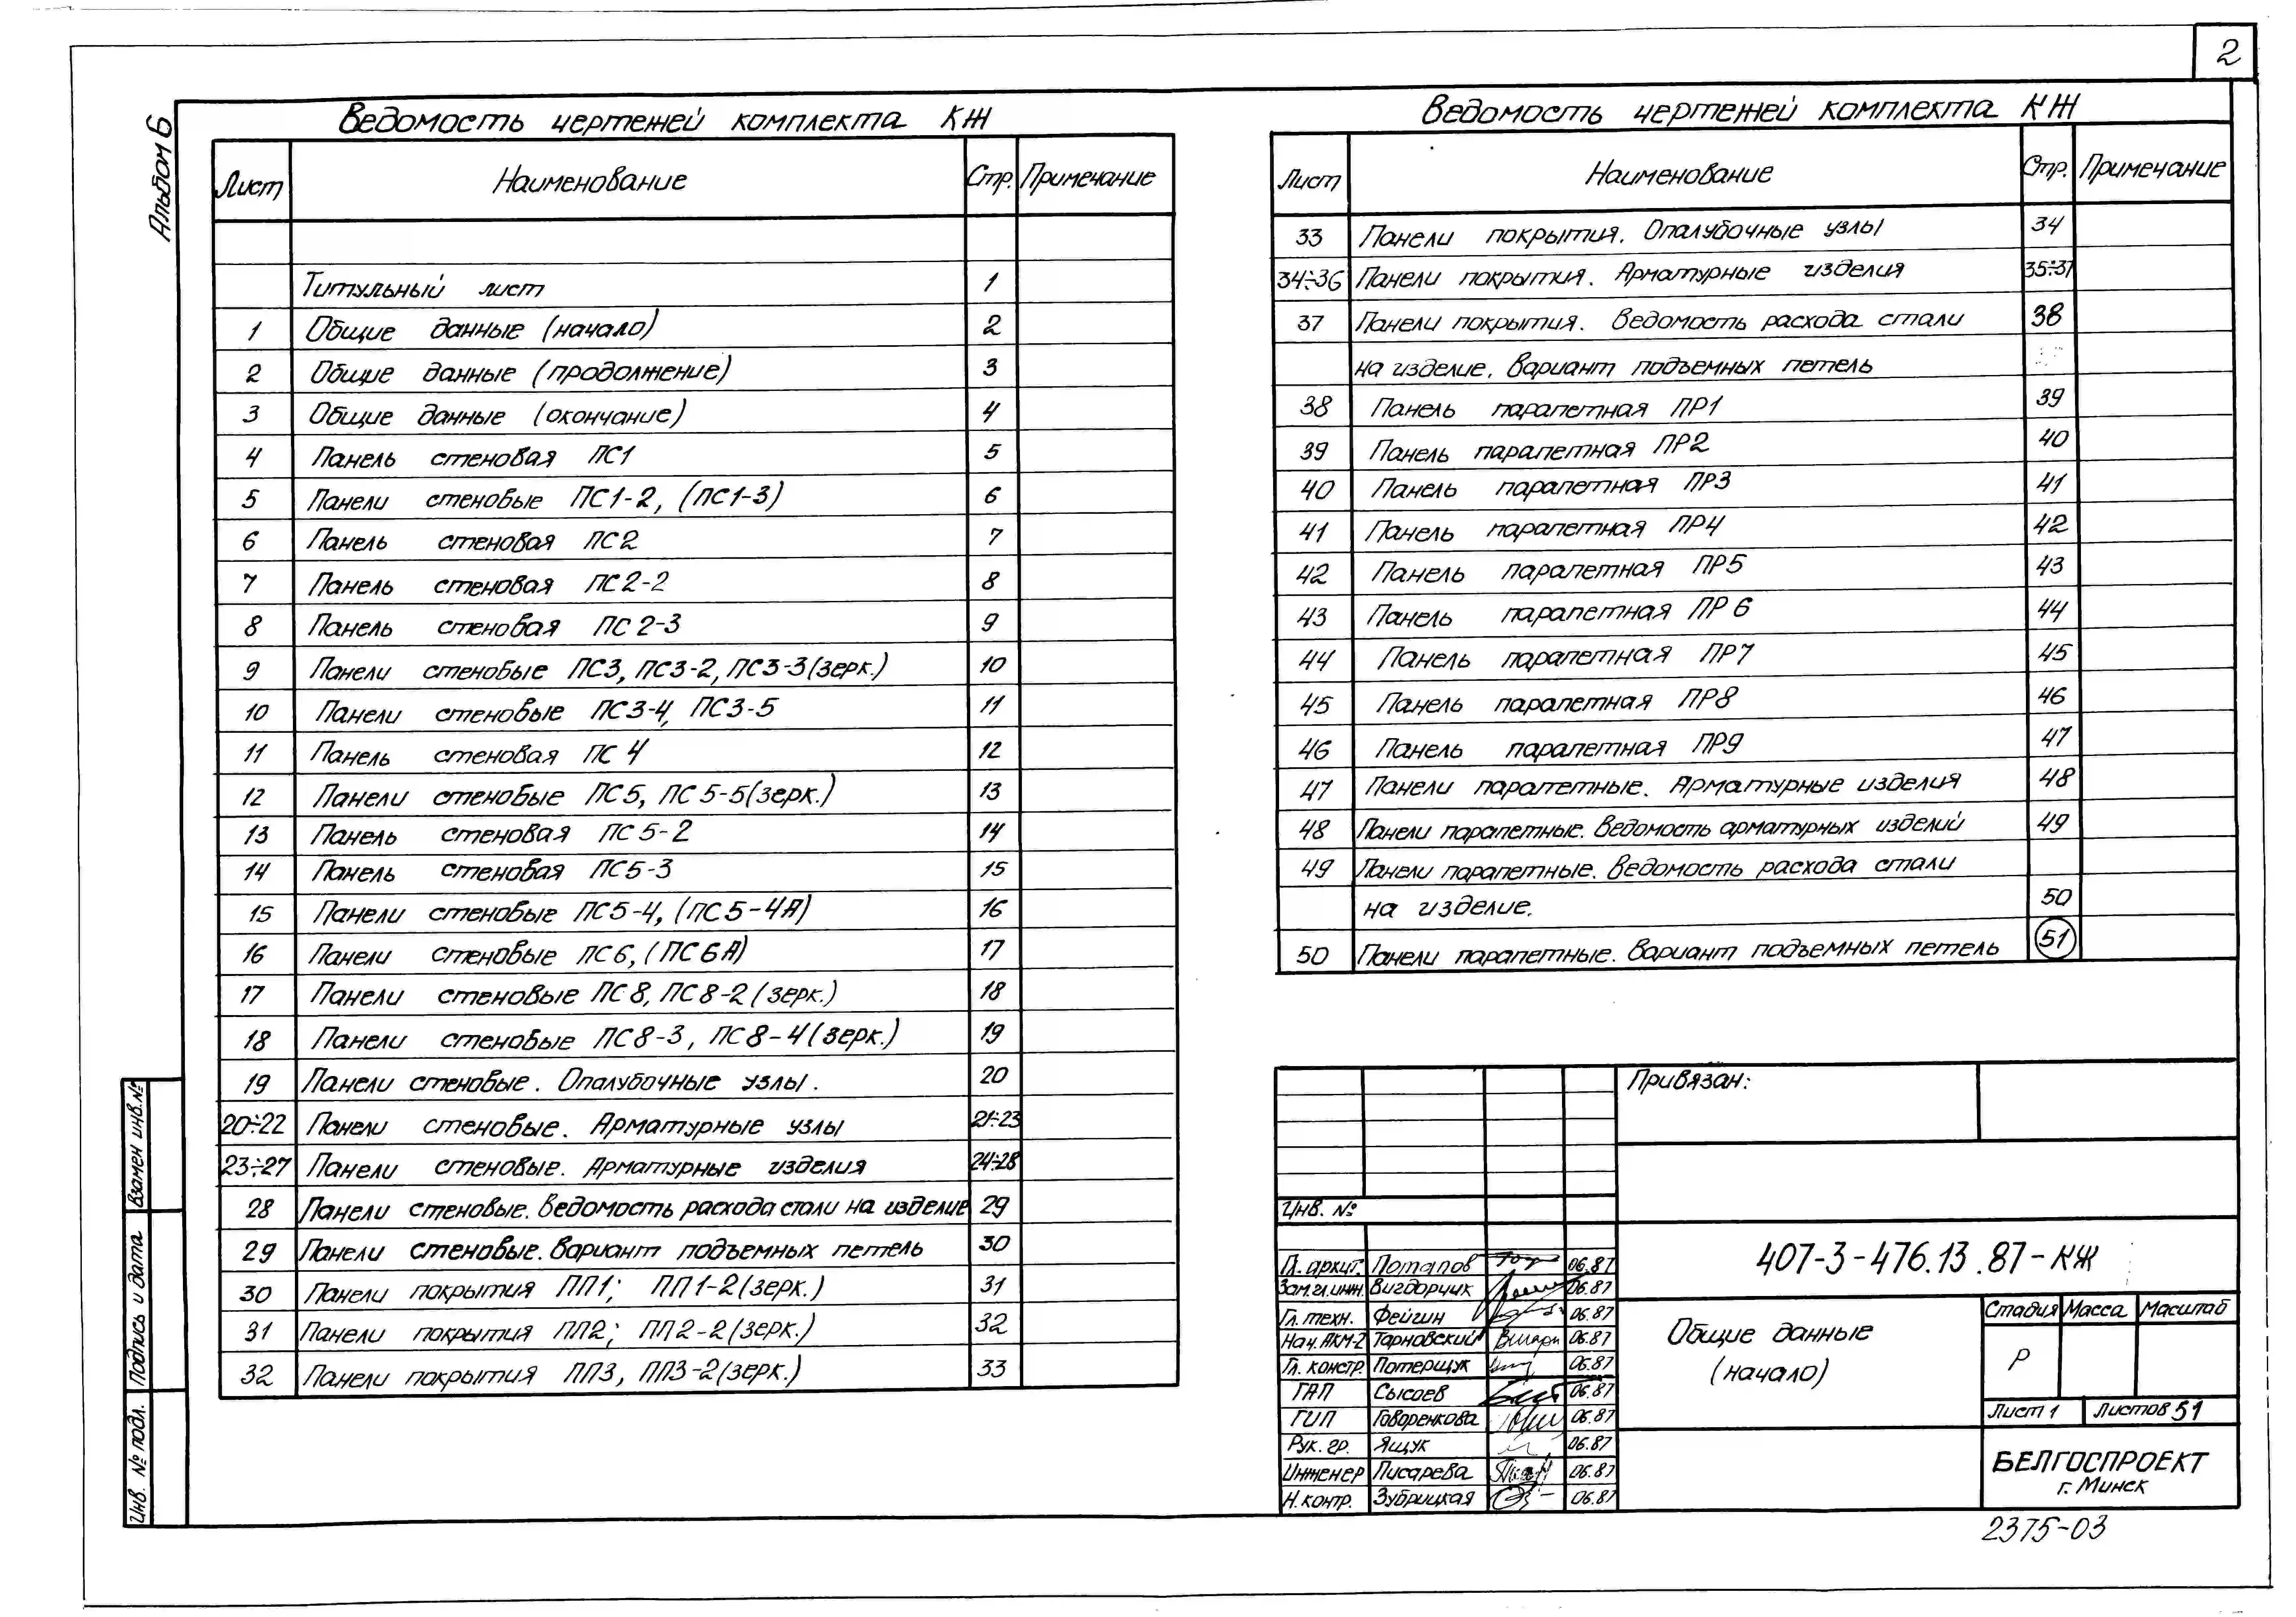 2
Альбом 6
Ведомость чертежей комплекта КЖ
Лист Наименование Стр. Примечание
Титульный лист 1
1 Общие данные (начало) 2
2 Общие данные (продолжение) 3
3 Общие данные (окончание) 4
4 Панель стеновая ПС1 5
5 Панели стеновые ПС1-2, (ПС1-3) 6
6 Панель стеновая ПС2 7
7 Панель стеновая ПС2-2 8
8 Панель стеновая ПС2-3 9
9 Панели стеновые ПС3, ПС3-2, ПС3-3(зерк.) 10
10 Панели стеновые ПС3-4, ПС3-5 11
11 Панель стеновая ПС4 12
12 Панели стеновые ПС5, ПС5-5(зерк.) 13
13 Панель стеновая ПС5-2 14
14 Панель стеновая ПС5-3 15
15 Панели стеновые ПС5-4, (ПС5-4А) 16
16 Панели стеновые ПС6, (ПС6А) 17
17 Панели стеновые ПС8, ПС8-2(зерк.) 18
18 Панели стеновые ПС8-3, ПС8-4(зерк.) 19
19 Панели стеновые. Опалубочные узлы. 20
20÷22 Панели стеновые. Арматурные узлы 21÷23
23÷27 Панели стеновые. Арматурные изделия 24÷28
28 Панели стеновые. Ведомость расхода стали на изделие 29
29 Панели стеновые. Вариант подъемных петель 30
30 Панели покрытия ПП1; ПП1-2(зерк.) 31
31 Панели покрытия ПП2; ПП2-2(зерк.) 32
32 Панели покрытия ПП3, ПП3-2(зерк.) 33
Ведомость чертежей комплекта КЖ
Лист Наименование Стр. Примечание
33 Панели покрытия. Опалубочные узлы 34
34÷36 Панели покрытия. Арматурные изделия 35÷37
37 Панели покрытия. Ведомость расхода стали 38
на изделие. Вариант подъемных петель
38 Панель парапетная ПР1 39
39 Панель парапетная ПР2 40
40 Панель парапетная ПР3 41
41 Панель парапетная ПР4 42
42 Панель парапетная ПР5 43
43 Панель парапетная ПР6 44
44 Панель парапетная ПР7 45
45 Панель парапетная ПР8 46
46 Панель парапетная ПР9 47
47 Панели парапетные. Арматурные изделия 48
48 Панели парапетные. Ведомость арматурных изделий 49
49 Панели парапетные. Ведомость расхода стали
на изделие. 50
50 Панели парапетные. Вариант подъемных петель 51
Привязан:
Инв. №
Гл. архит. Потапов 06.87
Зам.гл.инж. Вигдорчик 06.87
Гл. техн. Фейгин 06.87
Нач. АКМ-2 Тарновский 06.87
Гл. констр. Потерщук 06.87
ГАП Сысоев 06.87
ГИП Говоренкова 06.87
Рук. гр. Ящук 06.87
Инженер Писарева 06.87
Н. контр. Зубрицкая 06.87
407-3-476.13.87-КЖ
Общие данные
(начало)
Стадия Масса Масштаб
Р
Лист 1 Листов 51
БЕЛГОСПРОЕКТ
г. Минск
2375-03
Взамен инв.№
Подпись и дата
Инв. № подл.